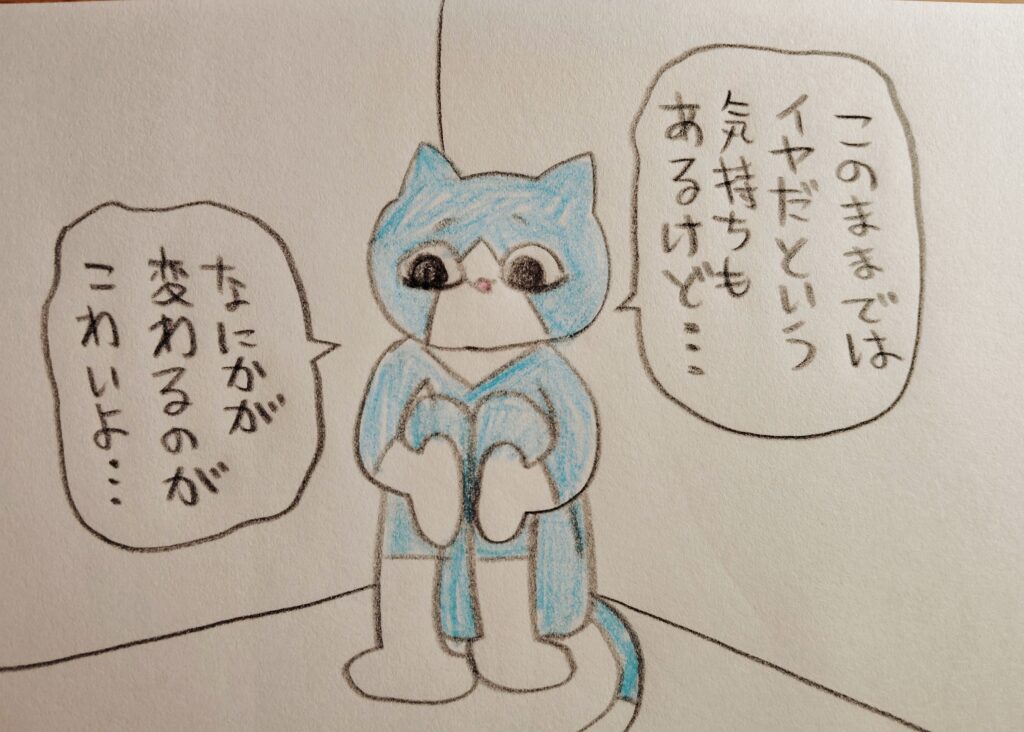 このままでは
イヤだという
気持ちも
あるけど…
なにかが
変わるのが
こわいよ…